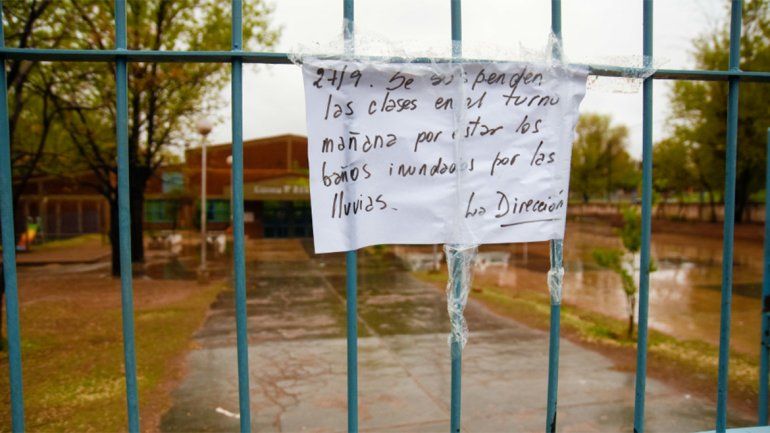 27/9. Se suspenden
las clases en el turno
mañana por estar los
baños inundados por las
lluvias. La Dirección